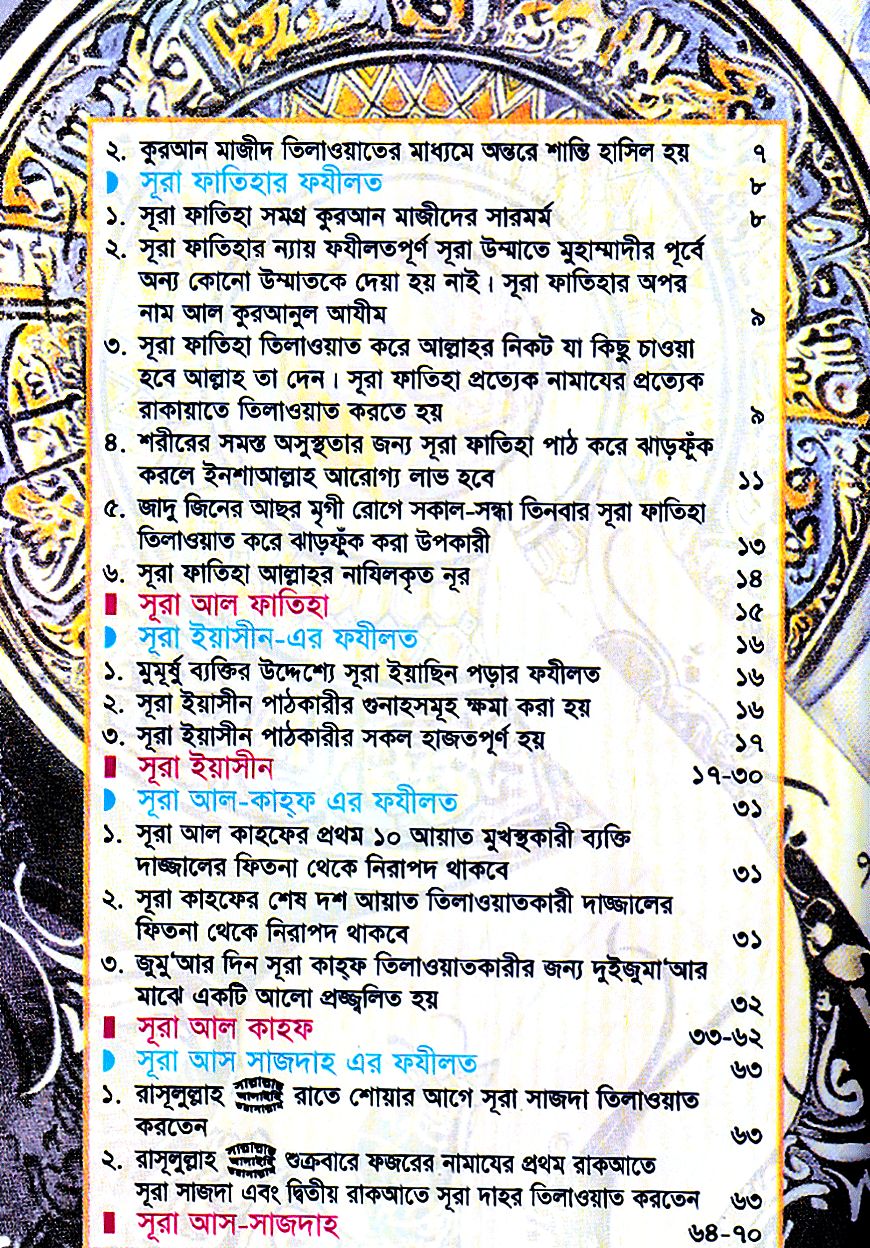 ২. কুরআন মাজীদ তিলাওয়াতের মাধ্যমে অন্তরে শান্তি হাসিল হয় ৭
সূরা ফাতিহার ফযীলত ৮
১. সূরা ফাতিহা সমগ্র কুরআন মাজীদের সারমর্ম ৮
২. সূরা ফাতিহার ন্যায় ফযীলতপূর্ণ সূরা উম্মাতে মুহাম্মাদীর পূর্বে
অন্য কোনো উম্মাতকে দেয়া হয় নাই। সূরা ফাতিহার অপর
নাম আল কুরআনুল আযীম ৯
৩. সূরা ফাতিহা তিলাওয়াত করে আল্লাহর নিকট যা কিছু চাওয়া
হবে আল্লাহ তা দেন। সূরা ফাতিহা প্রত্যেক নামাযের প্রত্যেক
রাকায়াতে তিলাওয়াত করতে হয় ৯
৪. শরীরের সমস্ত অসুস্থতার জন্য সূরা ফাতিহা পাঠ করে ঝাড়ফুঁক
করলে ইনশাআল্লাহ আরোগ্য লাভ হবে ১১
৫. জাদু জিনের আছর মৃগী রোগে সকাল-সন্ধা তিনবার সূরা ফাতিহা
তিলাওয়াত করে ঝাড়ফুঁক করা উপকারী ১৩
৬. সূরা ফাতিহা আল্লাহর নাযিলকৃত নূর ১৪
সূরা আল ফাতিহা ১৫
সূরা ইয়াসীন-এর ফযীলত ১৬
১. মুমূর্ষু ব্যক্তির উদ্দেশ্যে সূরা ইয়াছিন পড়ার ফযীলত ১৬
২. সূরা ইয়াসীন পাঠকারীর গুনাহসমূহ ক্ষমা করা হয় ১৬
৩. সূরা ইয়াসীন পাঠকারীর সকল হাজতপূর্ণ হয় ১৭
সূরা ইয়াসীন ১৭-৩০
সূরা আল-কাহ্‌ফ এর ফযীলত ৩১
১. সূরা আল কাহফের প্রথম ১০ আয়াত মুখস্থকারী ব্যক্তি
দাজ্জালের ফিতনা থেকে নিরাপদ থাকবে ৩১
২. সূরা কাহফের শেষ দশ আয়াত তিলাওয়াতকারী দাজ্জালের
ফিতনা থেকে নিরাপদ থাকবে ৩১
৩. জুমু‘আর দিন সূরা কাহ্‌ফ তিলাওয়াতকারীর জন্য দুইজুমা‘আর
মাঝে একটি আলো প্রজ্জ্বলিত হয় ৩২
সূরা আল কাহফ ৩৩-৬২
সূরা আস সাজদাহ এর ফযীলত ৬৩
১. রাসূলুল্লাহ রাতে শোয়ার আগে সূরা সাজদা তিলাওয়াত
করতেন ৬৩
২. রাসূলুল্লাহ শুক্রবারে ফজরের নামাযের প্রথম রাকআতে
সূরা সাজদা এবং দ্বিতীয় রাকআতে সূরা দাহর তিলাওয়াত করতেন ৬৩
সূরা আস-সাজদাহ ৬৪-৭০